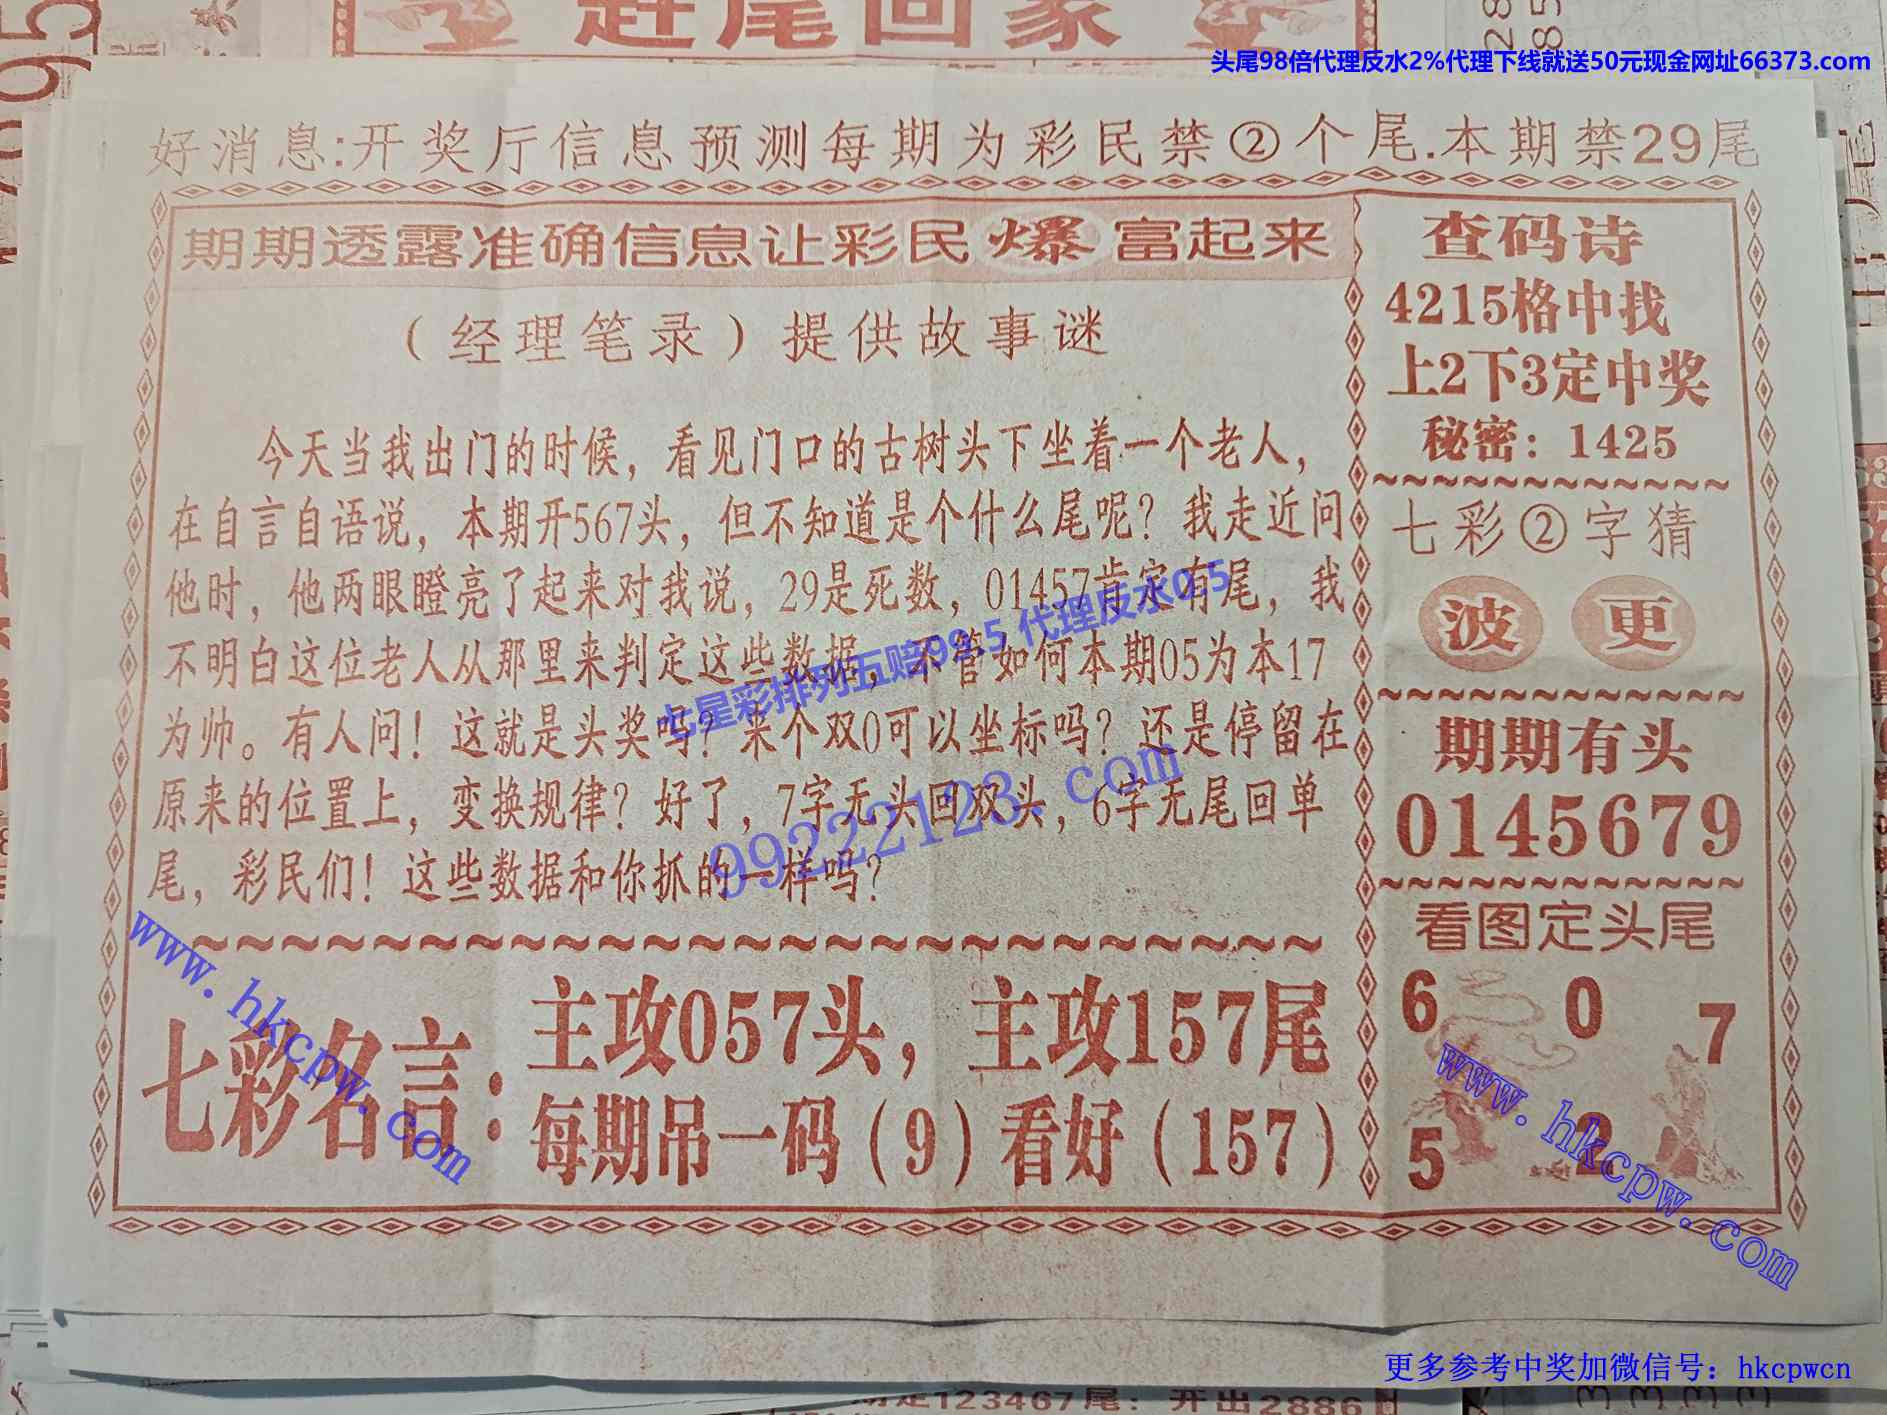 赶尾回家
头尾98倍代理反水2%代理下线就送50元现金网址66373.com
好消息:开奖厅信息预测每期为彩民禁②个尾.本期禁29尾
期期透露准确信息让彩民爆富起来
（经理笔录）提供故事谜
今天当我出门的时候，看见门口的古树头下坐着一个老人，
在自言自语说，本期开567头，但不知道是个什么尾呢？我走近问
他时，他两眼瞪亮了起来对我说，29是死数，01457肯定有尾，我
不明白这位老人从那里来判定这些数据，不管如何本期05为本17
为帅。有人问！这就是头奖吗？来个双0可以坐标吗？还是停留在
原来的位置上，变换规律？好了，7字无头回双头，6字无尾回单
尾，彩民们！这些数据和你抓的一样吗？
七星彩排列五赔99.5 代理反水0.5
99222123.com
七彩名言：
主攻057头，主攻157尾
每期吊一码（9）看好（157）
查码诗
4215格中找
上2下3定中奖
秘密：1425
七彩②字猜
波 更
期期有头
0145679
看图定头尾
6 0 7
5 2
www.hkcpw.com
www.hkcpw.com
更多参考中奖加微信号：hkcpwcn
123467尾：开出2886